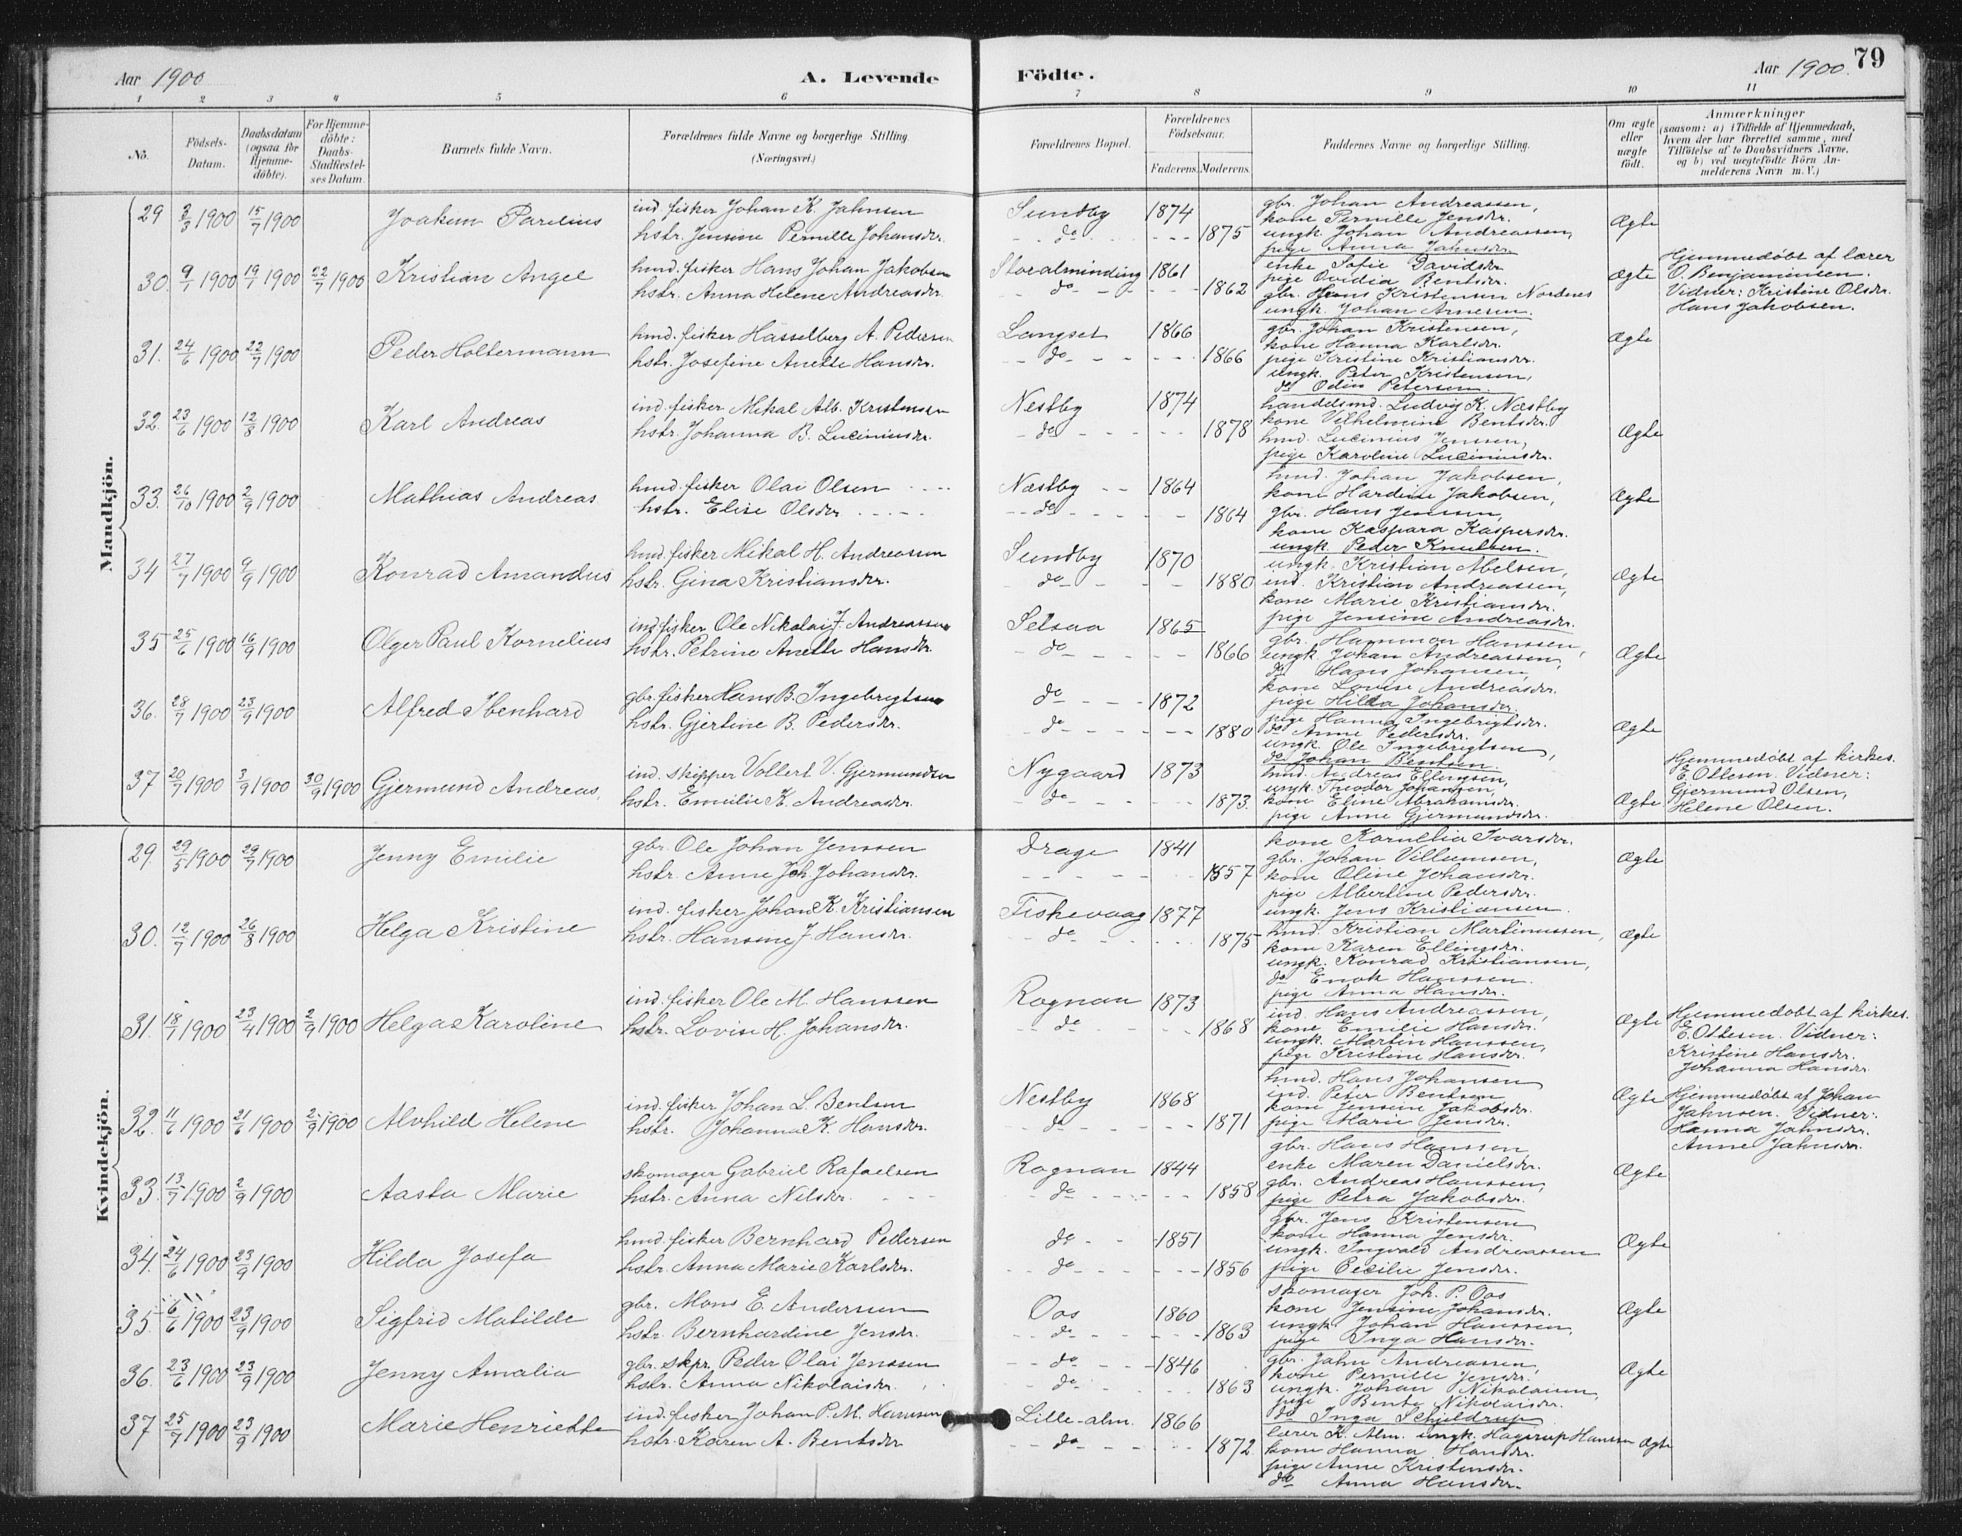 Aar 1900
A. Levende
Födte.
Aar 1900.
79
1 2 3 4 5 6 7 8 9 10 11
No.
Födsels-
Datum.
Daabsdatum
(ogsaa for
Hjemme-
döbte).
For Hjemme-
döbte:
Daabs-
Stadfæstel-
ses Datum.
Barnets fulde Navn.
Forældrenes fulde Navne og borgerlige Stilling
(Næringsvei.)
Forældrenes Bopæl.
Forældrenes
Födselsaar.
Faderens. Moderens.
Faddernes Navne og borgerlige Stilling.
Om ægte
eller
uægte
födt.
Anmærkninger
(saasom: a) i Tilfælde af Hjemmedaab,
hvem der har forrettet samme, med
Tilföielse af to Daabsvidners Navne.
og b) ved uegtefödte Börn An-
melderens Navn m. V.)
Mandkjön.
29 3/3 1900 15/7 1900 Joakum Parelius
ind. fisker Johan K. Jahnsen
hstr. Jensine Pernille Johansdr.
Sundby 1874
do 1875
gbr. Johan Andreassen,
kone Pernille Jensdr.
ungk. Johan Andreassen,
pige Anna Jahnsdr.
Ægte
30. 9/1 1900 19/7 1900 22/7 1900 Kristian Angel
hmd. fisker Hans Johan Jakobsen
hstr. Anna Helene Andreasdr.
Storalminding 1861
do 1862
enke Sofie Davidsdr
pige Ovidia Bentsdr.
gbr. Hans Kristensen Nordnes
ungk. Johan Arnesen.
Ægte
Hjemmedøbt af lærer
O. Benjaminsen.
Vidner: Kristine Olsdr.
Hans Jakobsen.
31. 24/6 1900 22/7 1900 Peder Holtermann
hmd. fisker Hasselberg A. Pedersen
hstr. Josefine Anette Hansdr.
Langset 1866
do 1866
gbr. Johan Kristensen,
kone Hanna Karlsdr.
pige Kristine Kristiansdr.
ungk. Peter Kristensen,
do Odin Petersen.
Ægte
32. 23/6 1900 12/8 1900 Karl Andreas
ind. fisker Mikal Alb. Kristensen
hstr. Johanna B. Luciniusdr.
Nestby 1874
do 1878
handelsmd. Ludvig K. Næstby
kone Vilhelmine Bentsdr.
hmd. Lucinius Jenssen,
pige Karoline Luciniusdr.
Ægte
33. 26/10 1900 2/9 1900 Mathias Andreas
hmd. fisker Olai Olsen
hstr. Elise Olsdr
Næstby 1864
do 1864
hmd. Johan Jakobsen,
kone Hardine Jakobsen,
gbr. Hans Jenssen,
kone Kaspara Kaspersdr.
ungk. Peder Knutsen.
Ægte
34 27/7 1900 9/9 1900 Konrad Amandus
hmd. fisker Mikal H. Andreassen
hstr. Gina Kristiansdr.
Sundby 1870
do 1880
ungk. Kristian Abelsen,
ind. Kristian Andreassen,
kone Marie Kristiansdr.
pige Jensine Andreasdr.
Ægte
35 25/6 1900 16/9 1900 Olger Paul Kornelius
ind. fisker Ole Nikolai J. Andreassen
hstr. Petrine Anette Hansdr.
Selsaa 1865
do 1866
gbr. Hammon Hanssen,
ungk. Johan Andreassen,
do Hans Johansen,
kone Lovise Andreasdr.
pige Hilda Johansdr.
Ægte
36. 28/7 1900 23/9 1900 Alfred Ibenhard
gbr. fisker Hans B. Ingebrigtsen
hstr. Gjertine B. Pedersdr.
do 1872
do 1880
pige Hanna Ingebrigtsdr.
do Anne Pedersdr.
ungk. Ole Ingebrigtsen,
do Johan Bentsen.
Ægte
37 20/7 1900 3/9 1900 30/9 1900 Gjermund Andreas.
ind. skipper Vollert V. Gjermundsen
hstr. Emilie K. Andreasdr.
Nygaard 1873
do 1873.
hmd. Andreas Ellingsen,
ungk. Theodor Johansen,
kone Eline Abrahamsdr.
pige Anne Gjermundsdr.
Ægte
Hjemmedøbt af kirkes.
E. Ottesen. Vidner:
Gjermund Olsen,
Helene Olsen.
Kvindekjön.
29. 29/5 1900 29/7 1900 Jenny Emilie
gbr. Ole Johan Jenssen
hstr. Anne Joh. Johansdr.
Drage 1841
1857
kone Kornelia Ivarsdr.
gbr. Johan Villumsen,
kone Oline Johansdr.
pige Albertine Pedersdr.
ungk. Jens Kristiansen.
Ægte
30. 12/7 1900 26/8 1900 Helga Kristine
ind. fisker Johan K. Kristiansen
hstr. Hansine J. Hansdr.
Fiskevaag 1877
do 1875
hmd. Kristian Martinussen,
kone Karen Ellingsdr.
ungk. Konrad Kristiansen,
do Enok Hanssen.
pige Anna Hansdr.
Ægte
31. 18/7 1900 23/4 1900 2/9 1900 Helga Karoline
ind. fisker Ole M. Hanssen
hstr. Lovise H. Johansdr.
Rognan 1873
do 1868
ind. Hans Andreassen,
kone Emilie Hansdr.
ungk. Martin Hanssen,
pige Kristine Hansdr.
Ægte
Hjemmedøbt af kirkes.
E. Ottesen. Vidner:
Kristine Hansdr.
Johanna Hansdr.
32. 11/6 1900 21/6 1900 2/9 1900 Alvhild Helene
ind. fisker Johan L. Bentsen
hstr. Johanna K. Hansdr.
Nestby 1868
do 1871
hmd. Hans Johansen
ind. Peter Bentsen
kone Jensine Jakobsdr.
pige Marie Jensdr.
Ægte
Hjemmedøbt af Johan
Jahnsen. Vidner:
Hanna Jahnsdr.
Anne Jahnsdr.
33. 13/7 1900 2/9 1900 Aasta Marie
skomager Gabriel Rafaelsen
hstr. Anna Nilsdr.
Rognan 1844
do 1858
gbr. Hans Hanssen
enke Maren Danielsdr.
gbr. Andreas Hanssen,
pige Petra Jakobsdr.
Ægte
34. 24/6 1900 23/9 1900 Hilda Josefa
hmd. fisker Bernhard Pedersen
hstr. Anna Marie Karlsdr.
do 1851
do 1856
gbr. Jens Kristensen
kone Hanna Jensdr.
ungk. Ingvald Andreassen
pige Cecilie Jensdr.
Ægte
35 6/6 1900 23/9 1900 Sigfrid Matilde
gbr. Mons E. Andersen
hstr. Bernhardine Jensdr.
Oos 1860
do 1863
skomager Joh. P. Oos
kone Jensine Johansdr.
ungk. Johan Hanssen,
pige Inga Hansdr.
Ægte
36. 23/6 1900 23/9 1900 Jenny Amalia
gbr. skpr. Peder Olai Jenssen
hstr. Anna Nikolaisdr.
do 1846
do 1863
gbr. Jahn Andreassen,
kone Pernille Jensdr.
ungk. Johan Nikolaisen,
pige Bente Nikolaisdr.
do Inga Schjeldrup
Ægte
37 25/7 1900 23/9 1900 Marie Henriette
ind. fisker Johan P. M. Hanssen
hstr. Karen A. Bentsdr
Lille-alm. 1866
do 1872
lærer K. Alm. ungk. Hagerup Hanssen
kone Hanna Hansdr.
pige Anne Kristensdr.
do Anna Hansdr.
Ægte